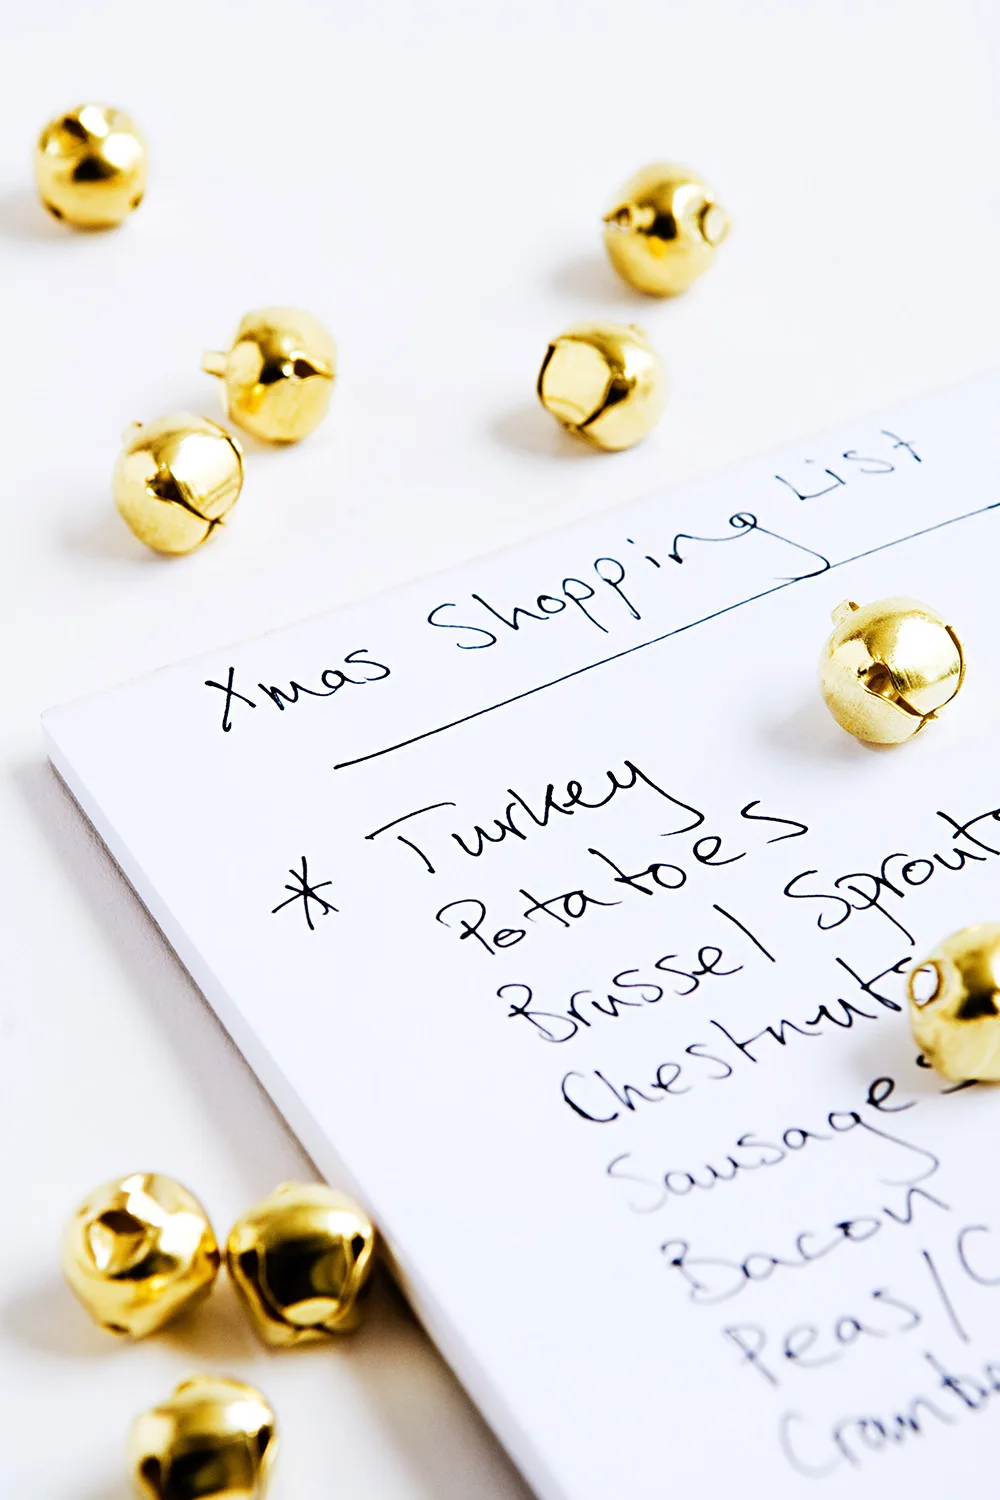 Xmas Shopping List
* Turkey
Potatoes
Brussel Sprouts
Chestnuts
Sausages
Bacon
Peas/C